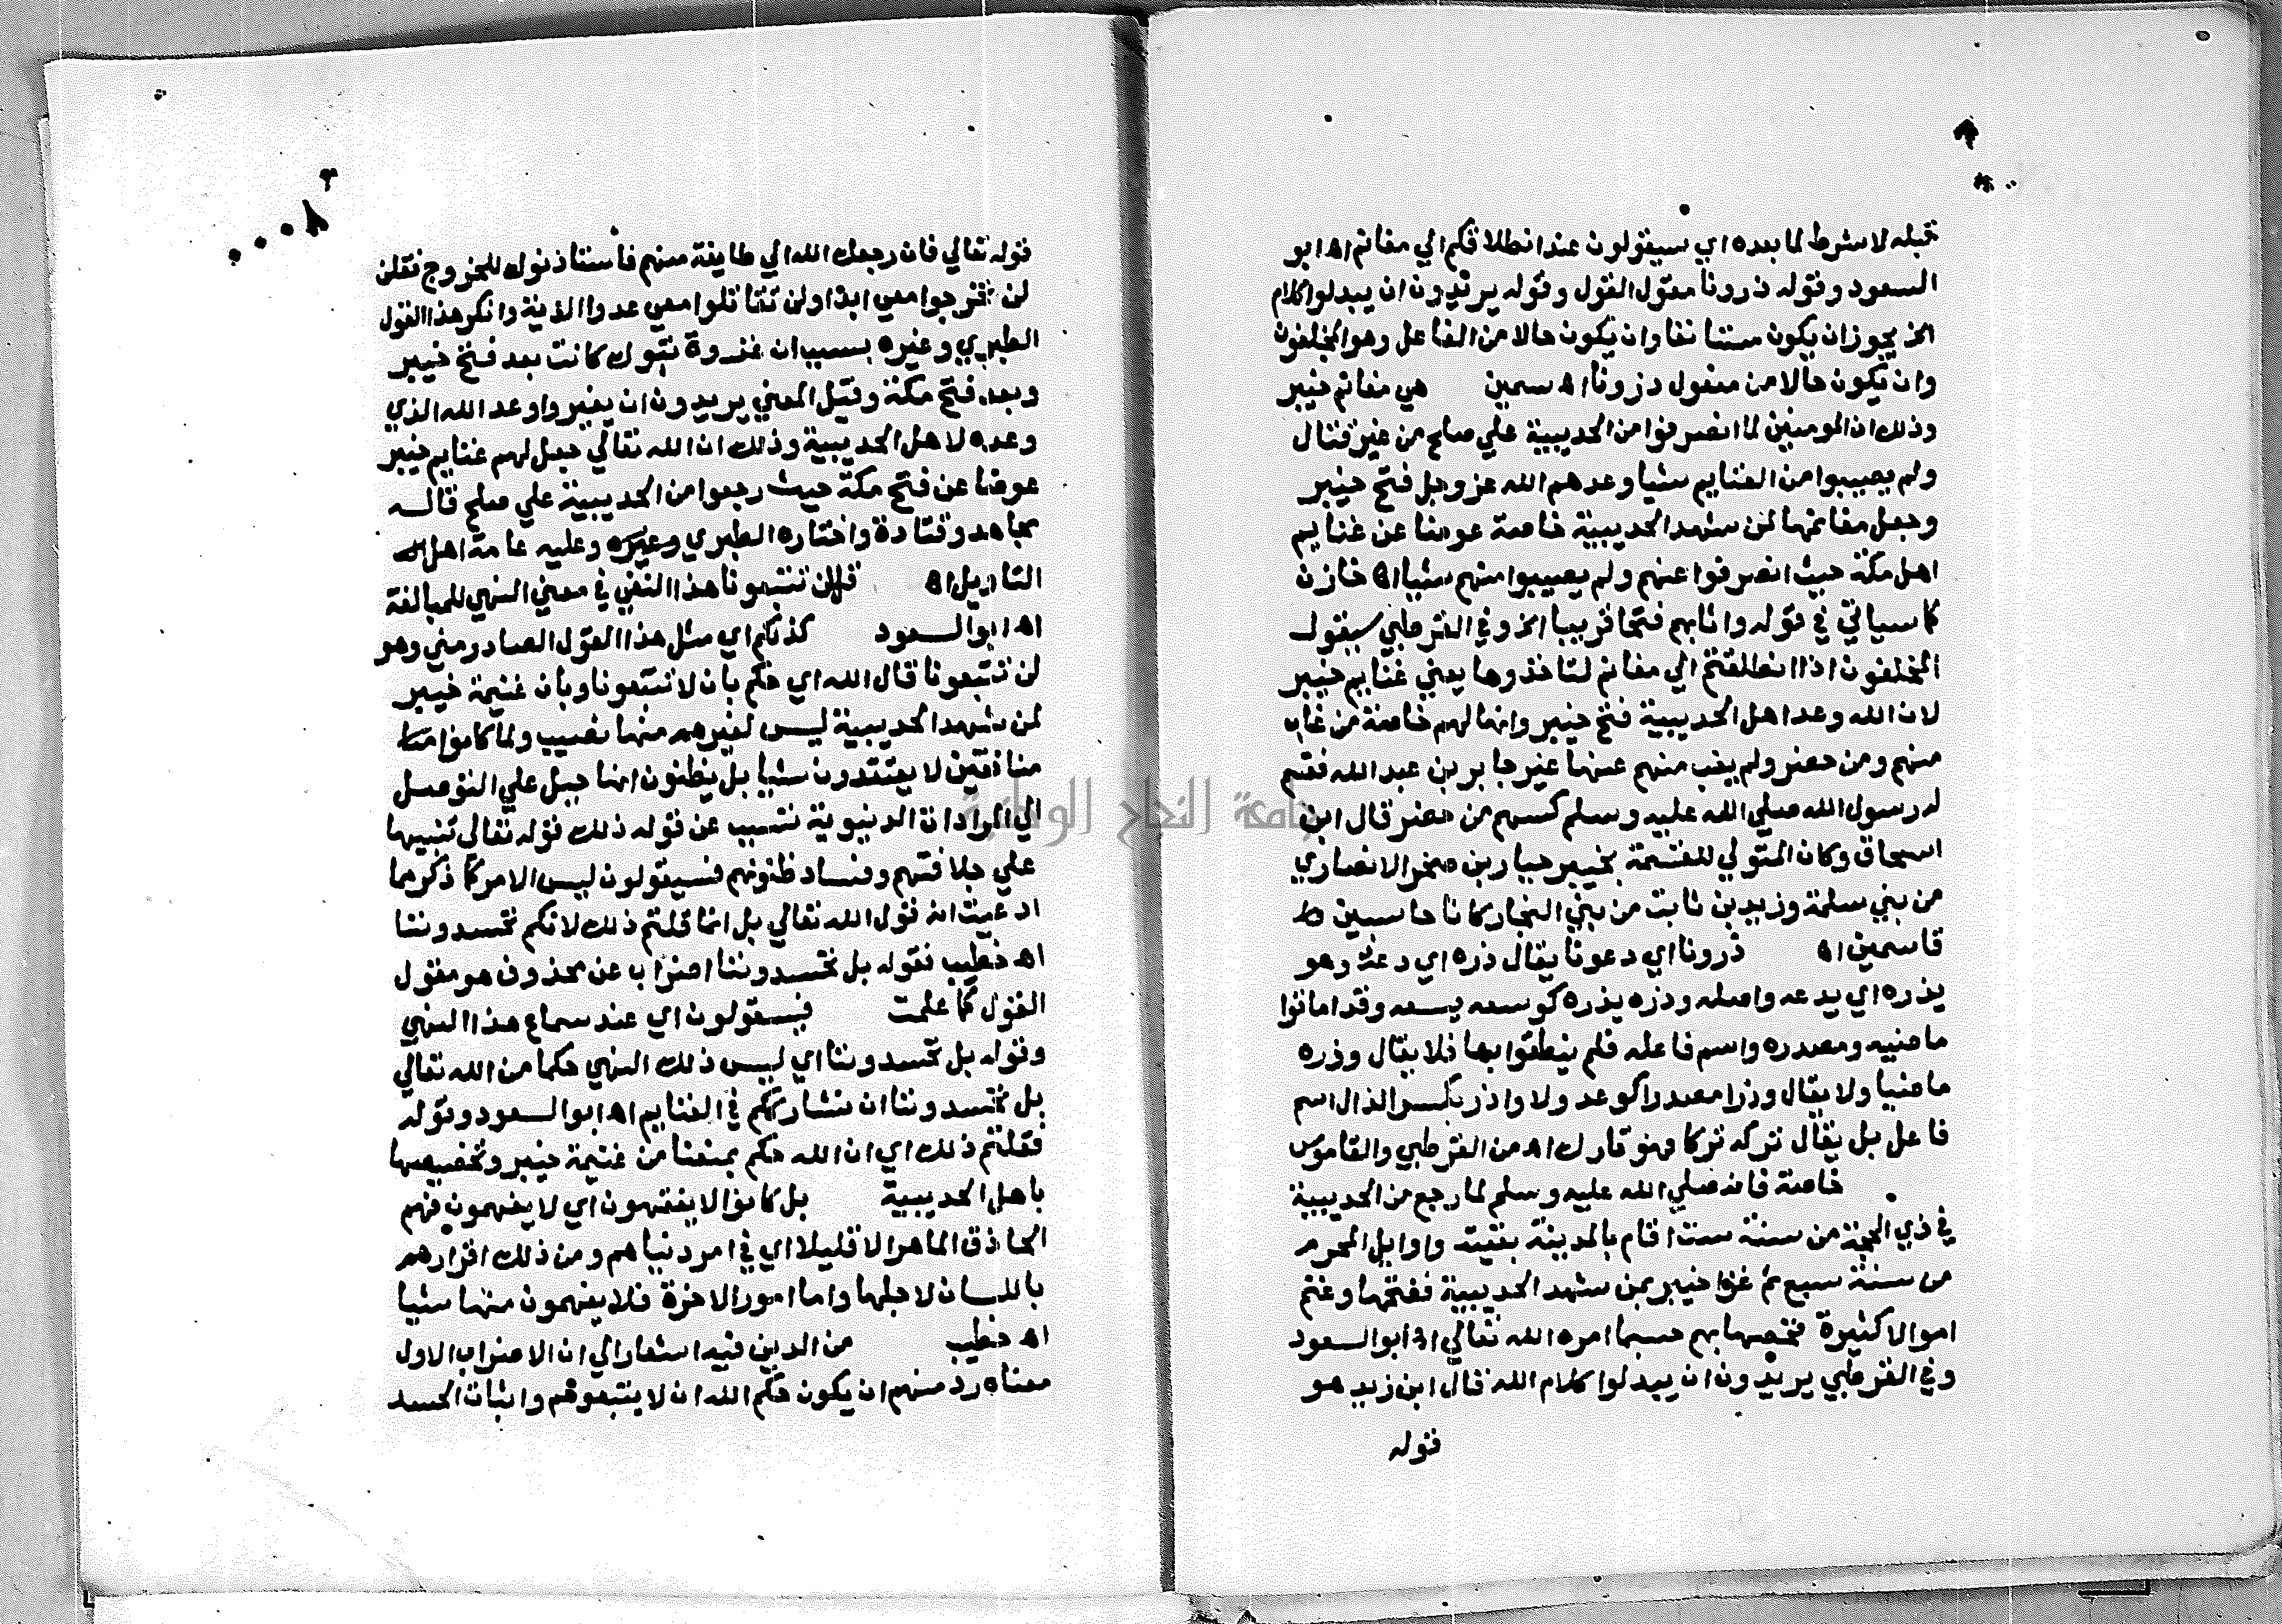 قبله لا شرط لما بعده اي سيقولون عند انطلاقكم الي مغانم اه ابو
السعود وقوله ذرونا مقول القول وقوله يريدون ان يبدلوا كلام
الخ يجوز ان يكون مستانفا وان يكون حالا من الفاعل وهو المخلفون
وان تكون حالا من مفعول درونا اه سمين هي مغانم خيبر
وذلك ان المومنين لما انصرفوا من الحديبية علي صلح من غير قتال
ولم يصيبوا من الغنايم شيا وعدهم الله عز وجل فتح خيبر
وجعل مغانمها لمن شهد الحديبية خاصة عوضا عن غنايم
اهل مكة حيث انصرفوا عنهم ولم يصيبوا منهم شيا اه خازن
كما سياتي في قوله واثابهم فتحا قريبا الخ وفي القرطبي سيقول
المخلفون اذا انطلقتم الي مغانم لتاخذوها يعني غنايم خيبر
لان الله وعد اهل الحديبية فتح خيبر وانها لهم خاصة من غاب
منهم ومن حضر ولم يغب منهم عنها غير جابر بن عبد الله فقسم
له رسول الله صلي الله عليه وسلم كسهم من حضر قال ابن
اسحاق وكان المتولي للقسمة بخيبر جبار بن صخر الانصاري
من بني سلمة وزيد بن ثابت من بني النجار كانا حاسبين
قاسمين اه ذرونا اي دعونا يقال ذره اي دعه وهو
يذره اي يدعه واصله وذره يذره كوسعه يسعه وقد اماتوا
ماضيه ومصدره واسم فاعله فلم ينطقوا بها فلا يقال وذره
ماضيا ولا يقال وذرا مصدرا كوعد ولا واذر بكسر الذال اسم
فاعل بل يقال تركه تركا فهو تارك اه من القرطبي والقاموس
خاصة فانه صلي الله عليه وسلم لما رجع من الحديبية
في ذي الحجة من سنة ست اقام بالمدينة بقيته واوايل المحرم
من سنة سبع ثم غزا خيبر بمن شهد الحديبية ففتحها وغنم
اموالا كثيرة فخصها بهم حسبما امره الله تعالي اه ابو السعود
وفي القرطبي يريدون ان يبدلوا كلام الله قال ابن زيد هو
قوله
٣
قوله تعالي فان رجعك الله الي طايفة منهم فاستاذنوك للخروج فقل
لن تخرجوا معي ابدا ولن تقاتلوا معي عدوا الاية وانكر هذا القول
الطبري وغيره بسبب ان غزوة تبوك كانت بعد فتح خيبر
وبعد فتح مكة وقيل المعني يريدون ان يغيروا وعد الله الذي
وعده لاهل الحديبية وذلك ان الله تعالي جعل لهم غنايم خيبر
عوضا عن فتح مكة حيث رجعوا من الحديبية علي صلح قاله
مجاهد وقتادة واختاره الطبري وغيره وعليه عامة اهل
التاويل اه قل لن تتبعونا هذا النفي في معني النهي للمبالغة
اه ابو السعود كذلكم اي مثل هذا القول الصادر مني وهو
لن تتبعونا قال الله اي حكم بان لا تتبعونا وبان غنيمة خيبر
لمن شهد الحديبية ليس لغيرهم منها نصيب ولما كانوا
منافقين لا يعتقدون شيا بل يظنون انها حيل علي التوصل
الي المرادات الدنيوية تسبب عن قوله ذلك قوله تعالي تنبيها
علي جلافتهم وفساد ظنونهم فسيقولون ليس الامر كما ذكر مما
ادعيت انه قول الله تعالي بل انما قلتم ذلك لانكم تحسدوننا
اه خطيب فقوله بل تحسدوننا اضراب عن محذوف هو مقول
القول كما علمت فسيقولون اي عند سماع هذا النهي
وقوله بل تحسدوننا اي ليس ذلك النهي حكما من الله تعالي
بل تحسدوننا ان نشارككم في الغنايم اه ابو السعود وقوله
فقلتم ذلك اي ان الله حكم بمنعنا من غنيمة خيبر وتخصيصها
باهل الحديبية بل كانوا لا يفقهون اي لا يفهمون فهم
الحاذق الماهر الا قليلا اي في امر دنياهم ومن ذلك اقرارهم
باللسان لاجلها واما امور الاخرة فلا يفهمون منها شيا
اه خطيب من الدين فيه اشعار الي ان الاضراب الاول
معناه رد منهم ان يكون حكم الله ان لا يتبعوهم واثبات الحسد
جامعة النجاح الوطنية